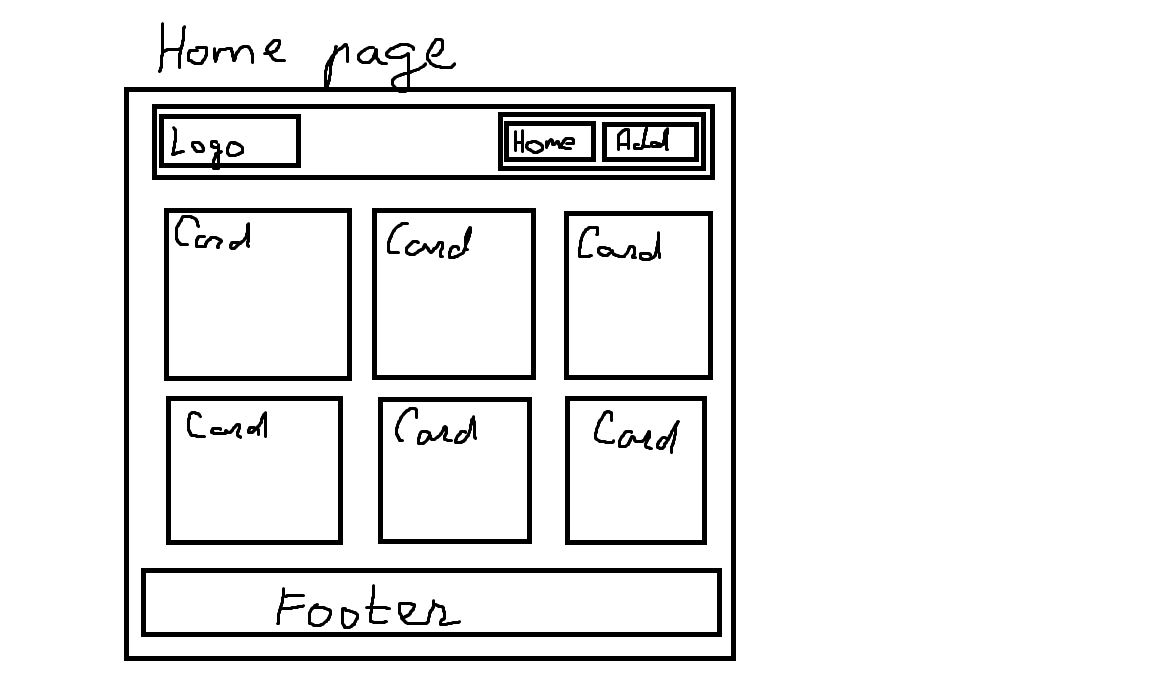 Home page
Logo Home Add
Card Card Card
Card Card Card
Footer